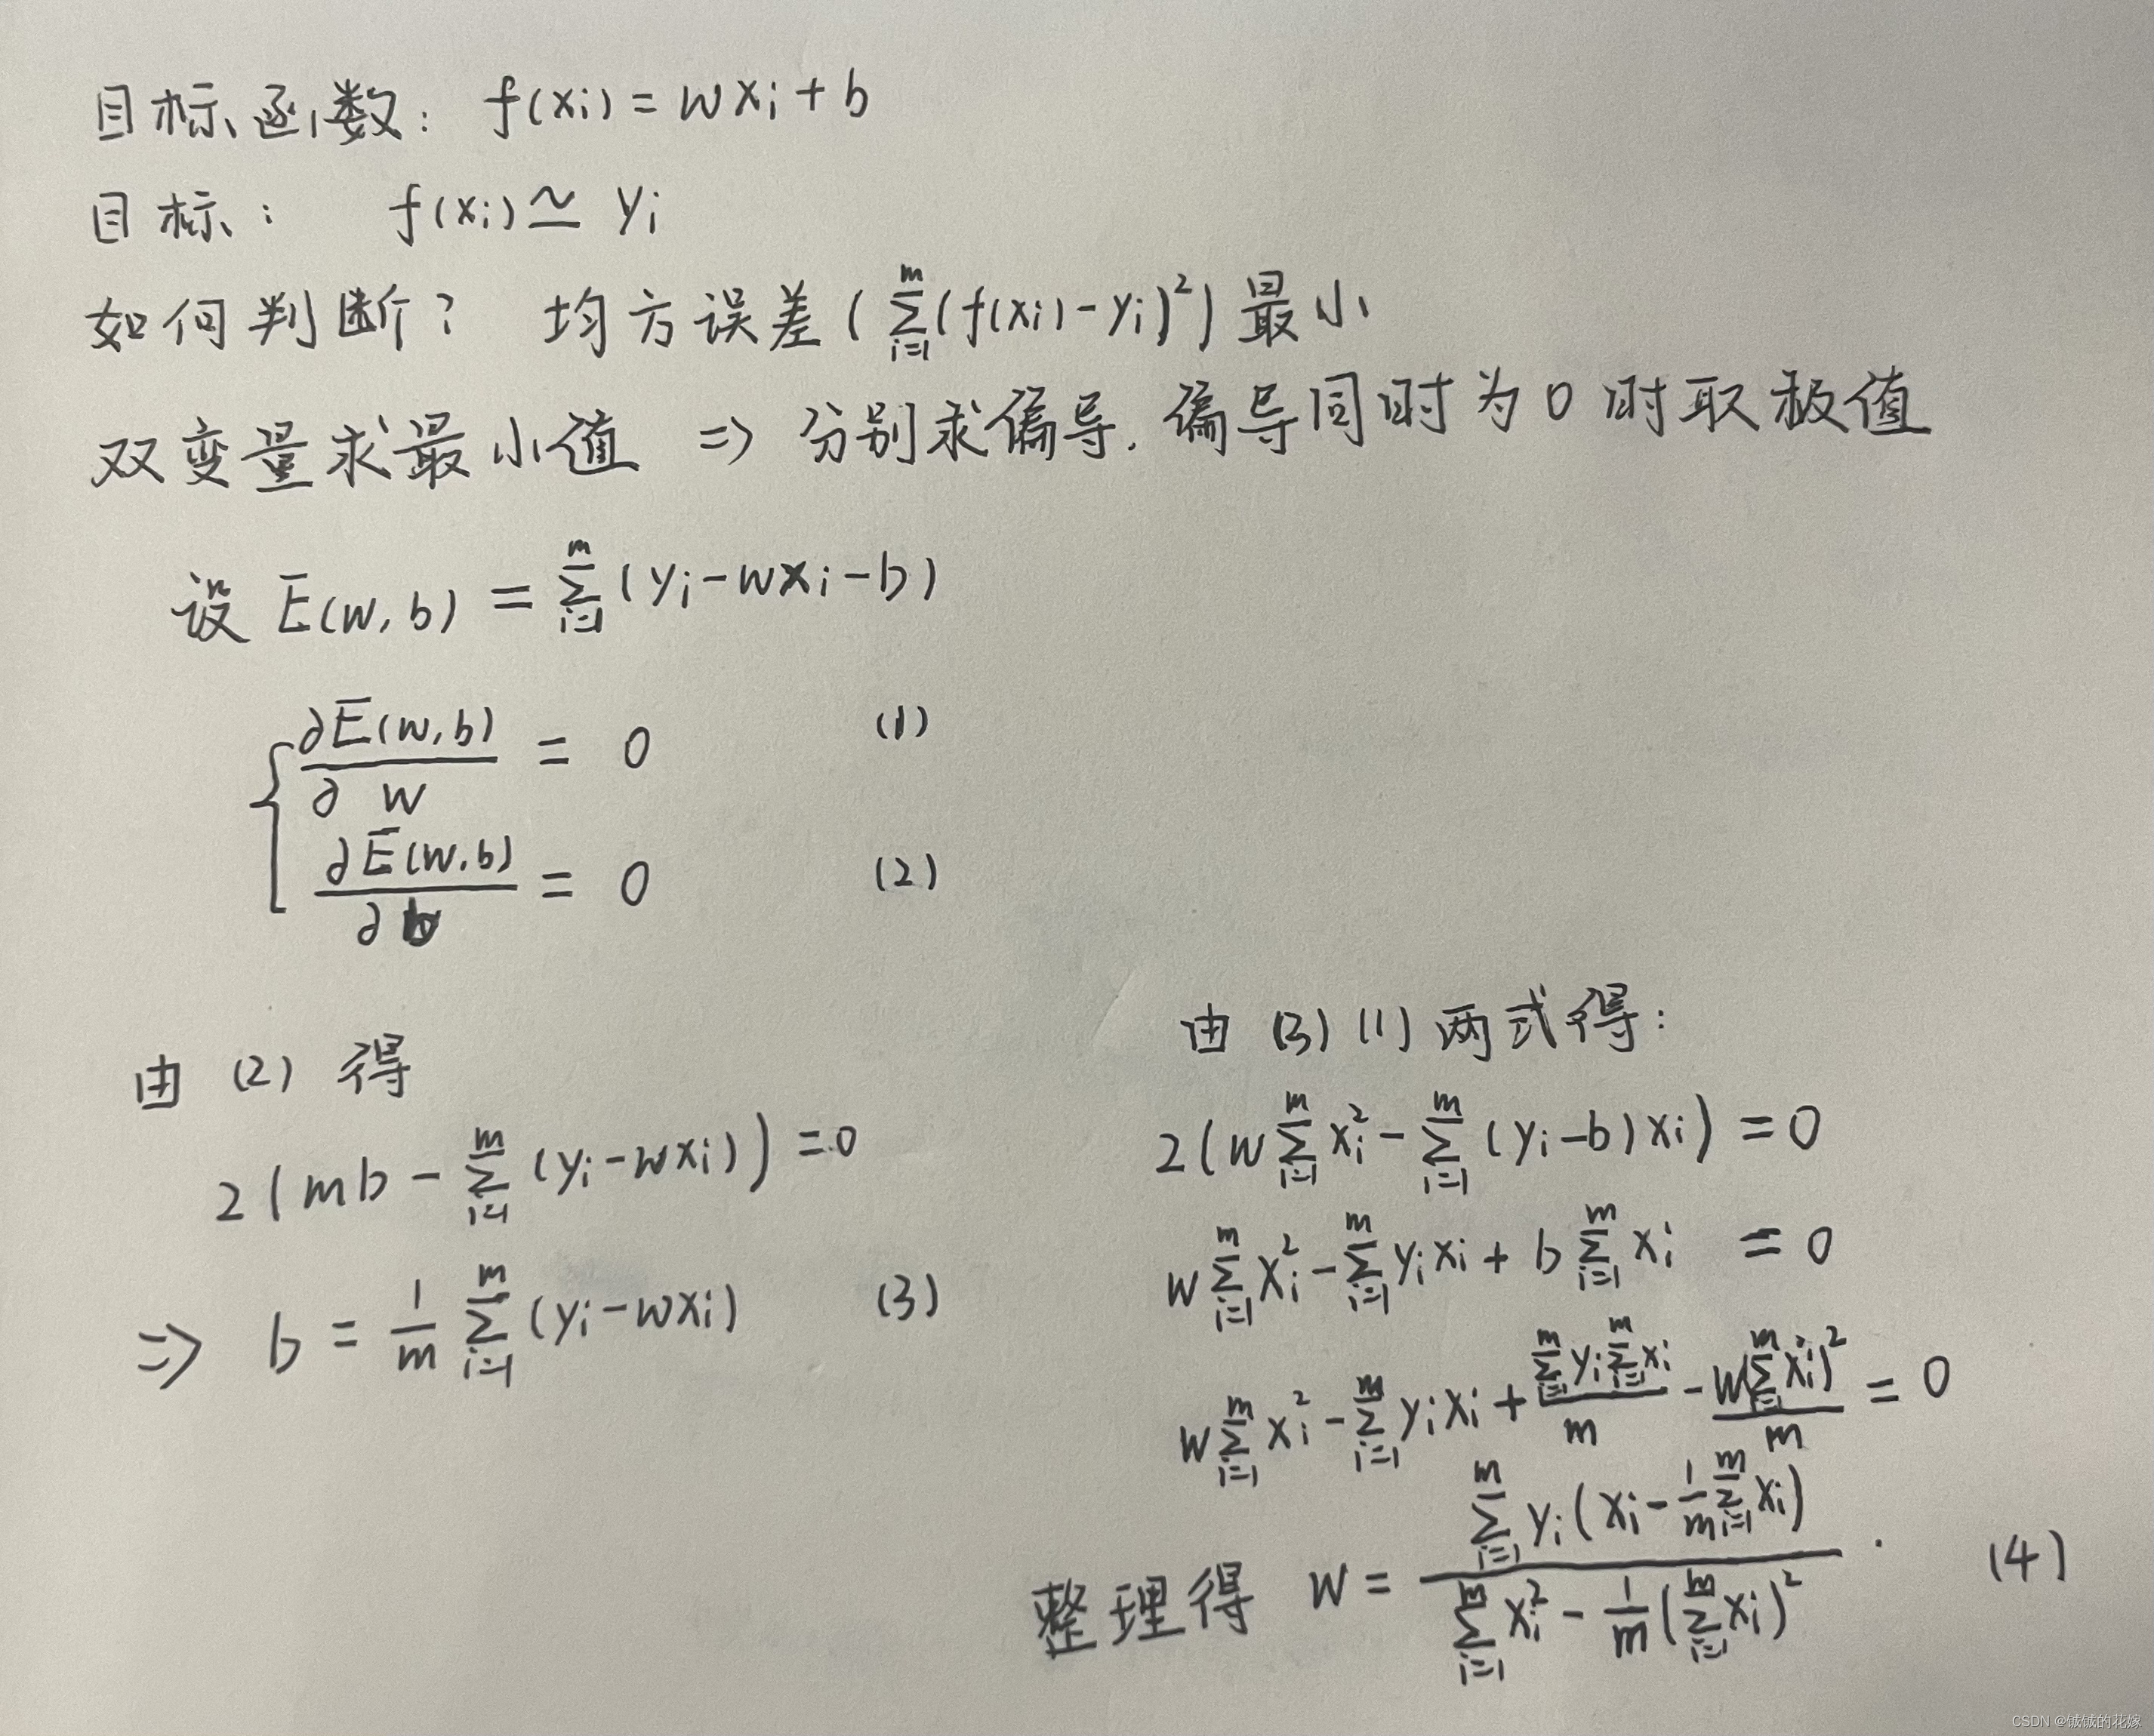 目标函数: f(xi) = wxi + b
目标: f(xi) ≃ yi
如何判断? 均方误差(∑_{i=1}^{m}(f(xi)-yi)²)最小
双变量求最小值 => 分别求偏导. 偏导同时为0时取极值
设 E(w,b) = ∑_{i=1}^{m}(yi-wxi-b)
{ ∂E(w,b)/∂w = 0 (1)
∂E(w,b)/∂b = 0 (2)
由 (2) 得
2(mb - ∑_{i=1}^{m}(yi-wxi)) = 0
=> b = 1/m ∑_{i=1}^{m}(yi-wxi) (3)
由 (3) (1) 两式得:
2(w∑_{i=1}^{m}xi² - ∑_{i=1}^{m}(yi-b)xi) = 0
w∑_{i=1}^{m}xi² - ∑_{i=1}^{m}yixi + b∑_{i=1}^{m}xi = 0
w∑_{i=1}^{m}xi² - ∑_{i=1}^{m}yixi + (∑_{i=1}^{m}yi∑_{i=1}^{m}xi)/m - w(∑_{i=1}^{m}xi)²/m = 0
整理得 w = (∑_{i=1}^{m}yi(xi - 1/m ∑_{i=1}^{m}xi))/(∑_{i=1}^{m}xi² - 1/m(∑_{i=1}^{m}xi)²). (4)
CSDN @铖铖的花嫁